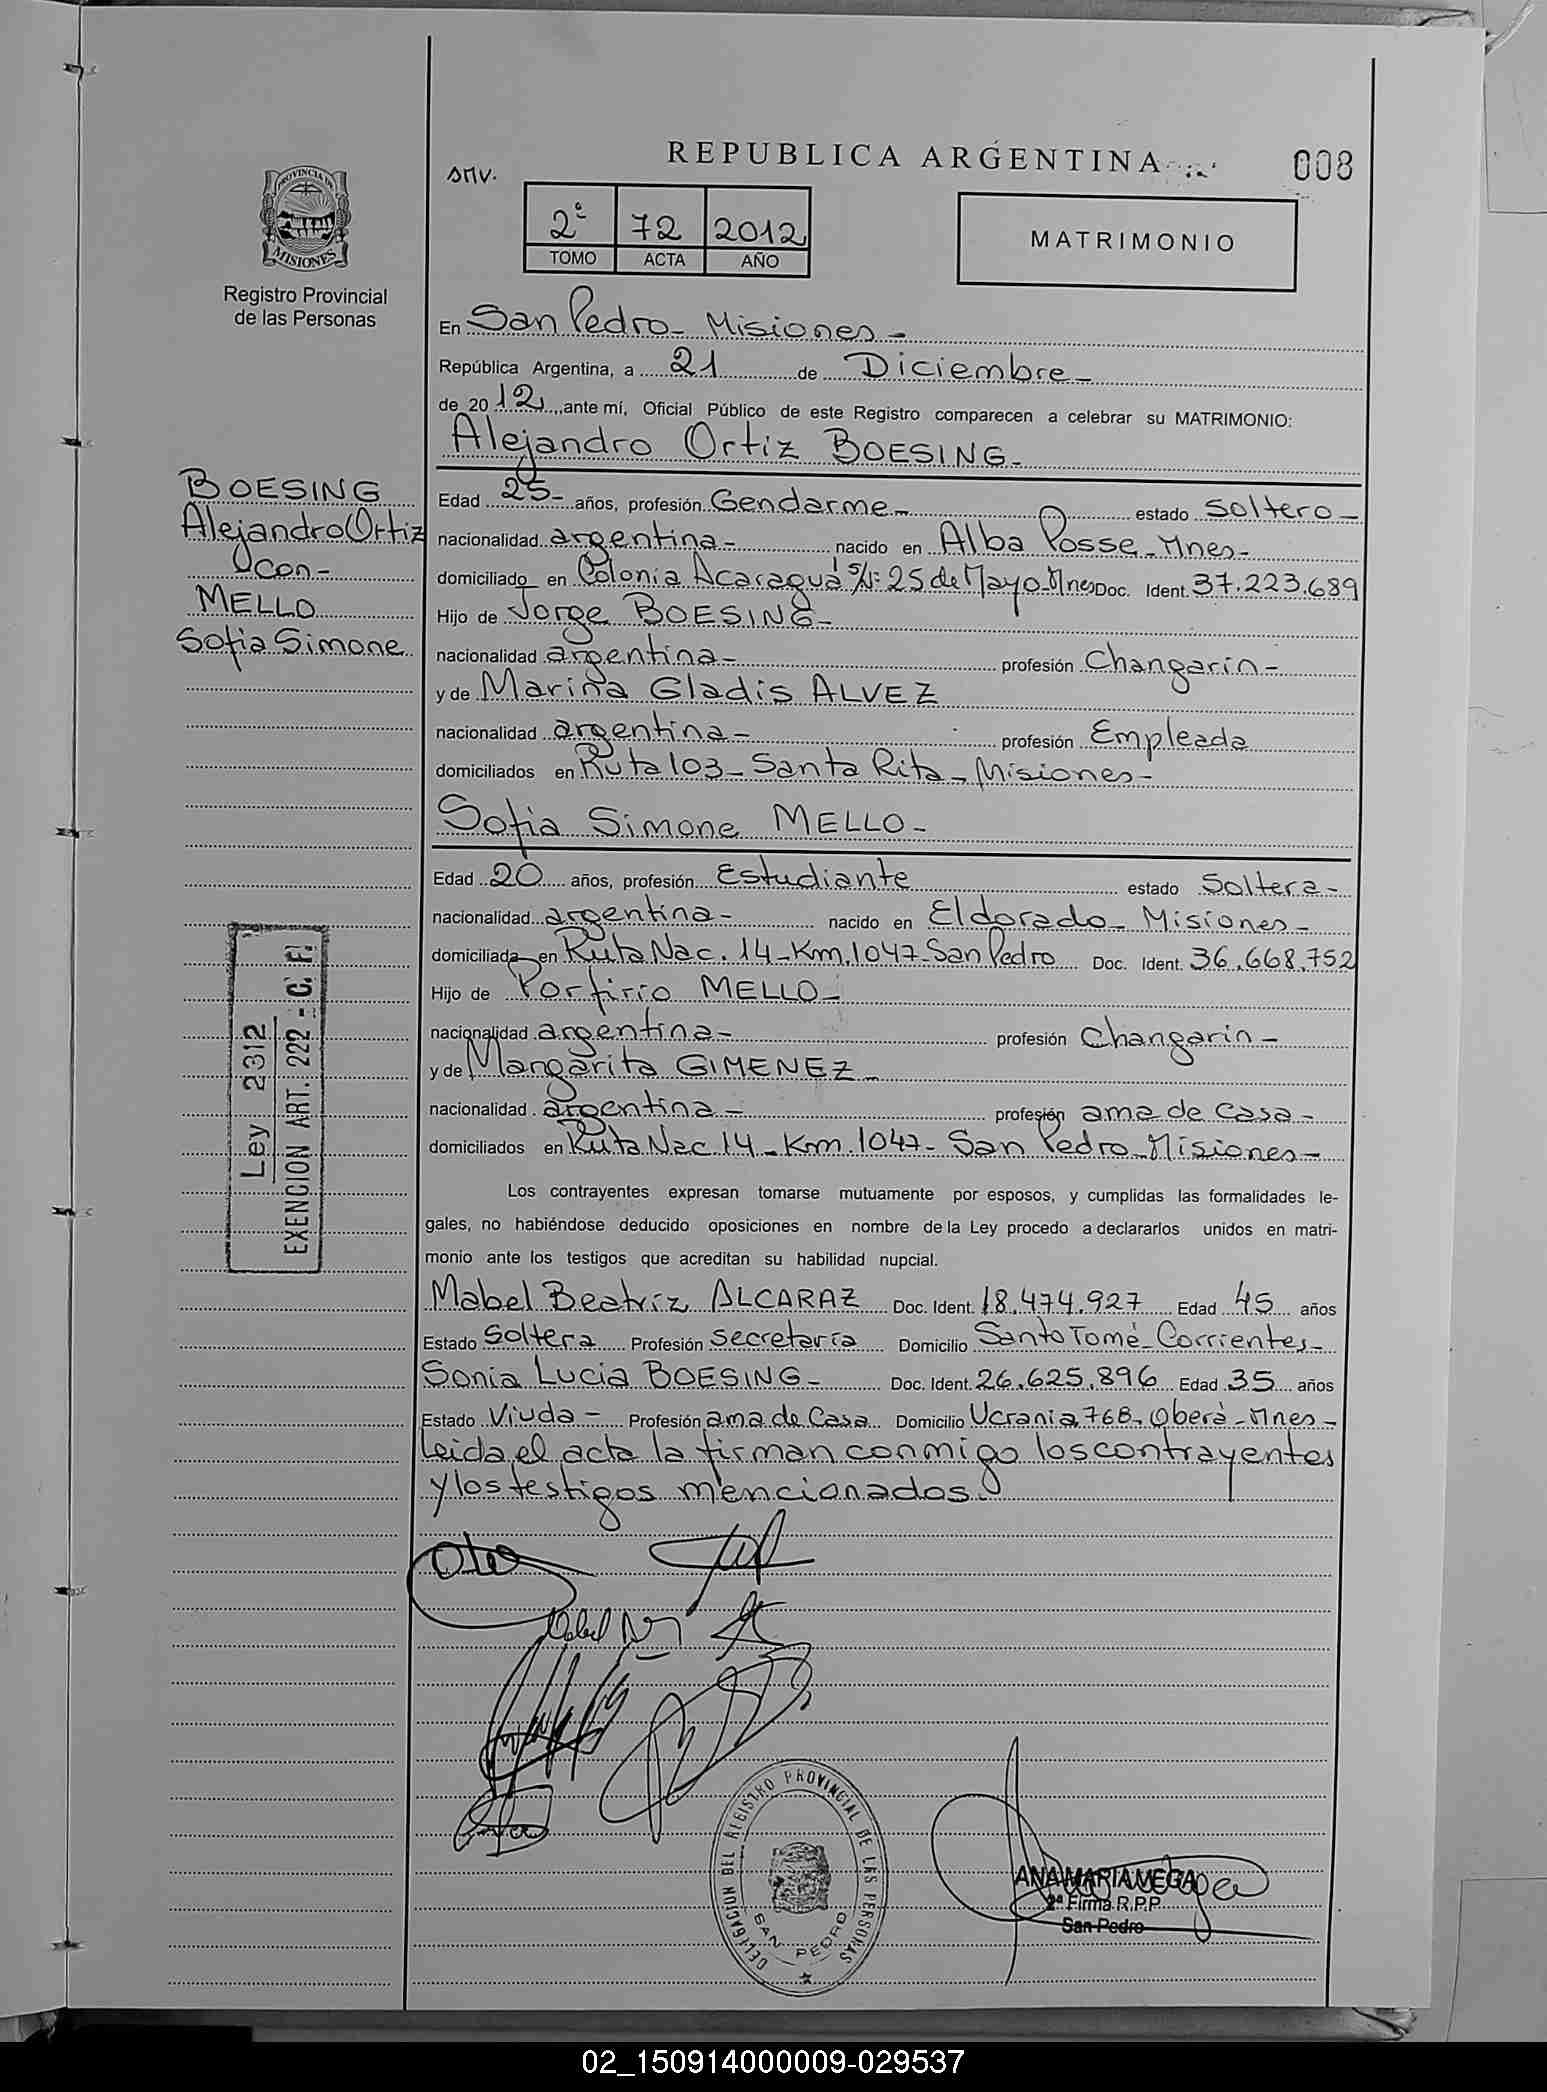 REPUBLICA ARGENTINA
008
SMV.
2º 72 2012
TOMO ACTA AÑO
MATRIMONIO
PROVINCIA DE
MISIONES
Registro Provincial
de las Personas
En San Pedro - Misiones -
República Argentina, a 21 de Diciembre -
de 2012, ante mí, Oficial Público de este Registro comparecen a celebrar su MATRIMONIO:
Alejandro Ortiz BOESING -
BOESING
Alejandro Ortiz
con -
MELLO
Sofia Simone
Edad 25 - años, profesión Gendarme - estado soltero -
nacionalidad argentina - nacido en Alba Posse - Mnes -
domiciliado en Colonia Acaraguá s/N: 25 de Mayo - Mnes Doc. Ident. 37.223.689
Hijo de Jorge BOESING -
nacionalidad argentina - profesión Changarin -
y de Marina Gladis ALVEZ
nacionalidad argentina - profesión Empleada
domiciliados en Ruta 103 - Santa Rita - Misiones -
Sofia Simone MELLO -
Edad 20 años, profesión Estudiante estado Soltera -
nacionalidad argentina - nacido en Eldorado - Misiones -
domiciliada en Ruta Nac. 14 - Km. 1047 - San Pedro Doc. Ident. 36.668.752
Hijo de Porfirio MELLO -
nacionalidad argentina - profesión Changarin -
y de Margarita GIMENEZ -
nacionalidad argentina - profesión ama de casa -
domiciliados en Ruta Nac. 14 - Km. 1047 - San Pedro - Misiones -
Ley 2312
EXENCION ART. 222 - C. F.
Los contrayentes expresan tomarse mutuamente por esposos, y cumplidas las formalidades le-
gales, no habiéndose deducido oposiciones en nombre de la Ley procedo a declararlos unidos en matri-
monio ante los testigos que acreditan su habilidad nupcial.
Mabel Beatriz ALCARAZ Doc. Ident. 18.474.927 Edad 45 años
Estado Soltera Profesión secretaria Domicilio Santo Tomé - Corrientes -
Sonia Lucia BOESING - Doc. Ident. 26.625.896 Edad 35 años
Estado Viuda - Profesión ama de Casa Domicilio Ucrania 768 - Oberá - Mnes -
Leida el acta la firman conmigo los contrayentes
y los testigos mencionados.
DELEGACION DEL REGISTRO PROVINCIAL DE LAS PERSONAS
SAN PEDRO
ANA MARIA VEGA
2ª Firma R.P.P.
San Pedro
02_150914000009-029537